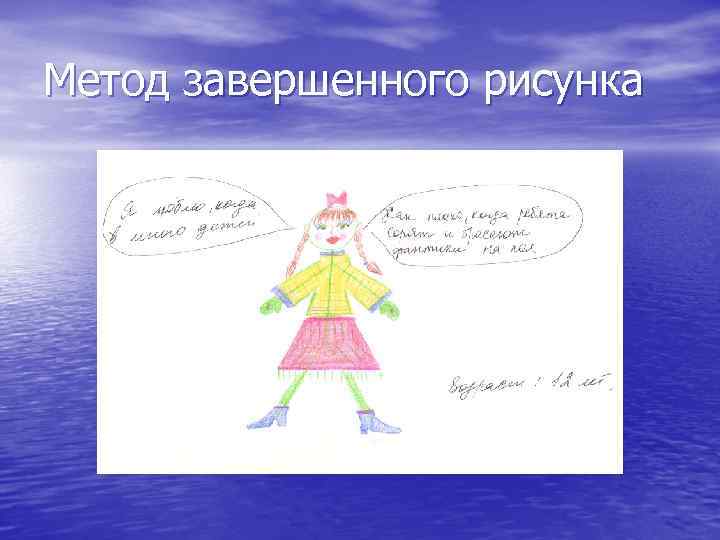 Метод завершенного рисунка
Я люблю, когда
в много детей
Как плохо, когда ребята
сорят и бросают
фантики на пол
Возраст: 12 лет.